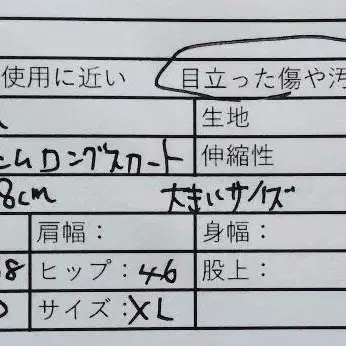 使用に近い 目立った傷や汚
生地
ムロングスカート 伸縮性
8cm 大きいサイズ
肩幅： 身幅：
8 ヒップ：46 股上：
サイズ：XL